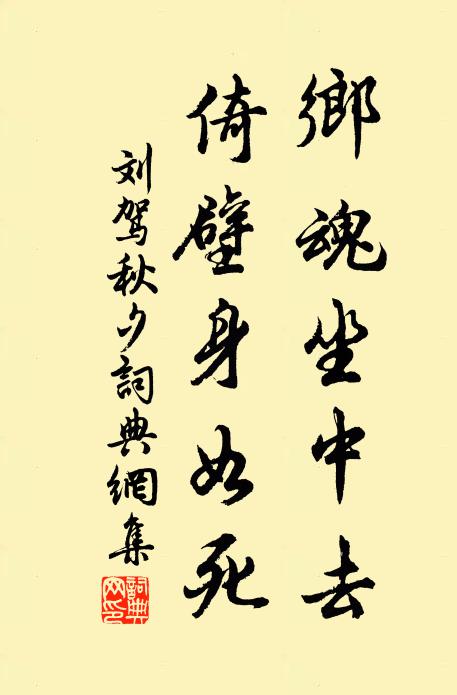 鄉魂坐中去
倚壁身如死
刘驾秋夕詞典網集
詞典網印